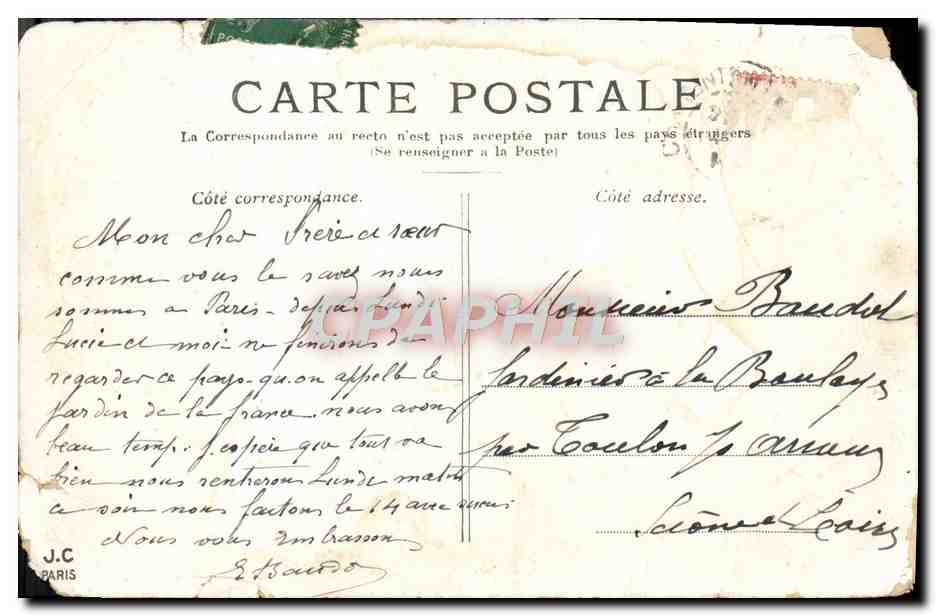 CARTE POSTALE
La Correspondance au recto n'est pas acceptée par tous les pays étrangers
(Se renseigner a la Poste)
Côté correspondance.
Mon cher Frère et soeur
comme vous le savez nous
sommes a Paris - depuis Lundi
Lucie et moi ne finirons de
regarder ce pays qu.on appelle le
Jardin de la france. nous avons
beau temp. j.espère que tout va
bien nous rentrerons Lundi matin
ce soir nous faitons le 14 avec
Nous vous Embrassons
E Baudo
J.C
PARIS
Côté adresse.
Monsieur Baudot
Jardinier à la Boulaye
par Toulon s/ arroux
Saône et Loire
CPAPHIL